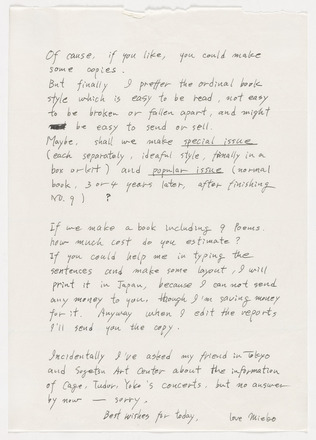 Of cause, if you like, you could make
some copies.
But finally I preffer the ordinal book
style which is easy to be read, not easy
to be broken or fallen apart, and might
be easy to send or sell.
Maybe, shall we make special issue
(each separately, ideaful style, finally in a
box or kit) and popular issue (normal
book, 3 or 4 years later, after finishing
NO. 9) ?
If we make a book including 9 Poems.
how much cost do you estimate?
If you could help me in typing the
sentences and make some layout, I will
print it in Japan, because I can not send
any money to you, though I'm saving money
for it. Anyway when I edit the reports
I'll send you the copy.
Incidentally I've asked my friend in Tokyo
and Sogetsu Art Center about the information
of Cage, Tudor, Yoko's concerts, but no answer
by now — sorry.
Best wishes for today, love Mieko